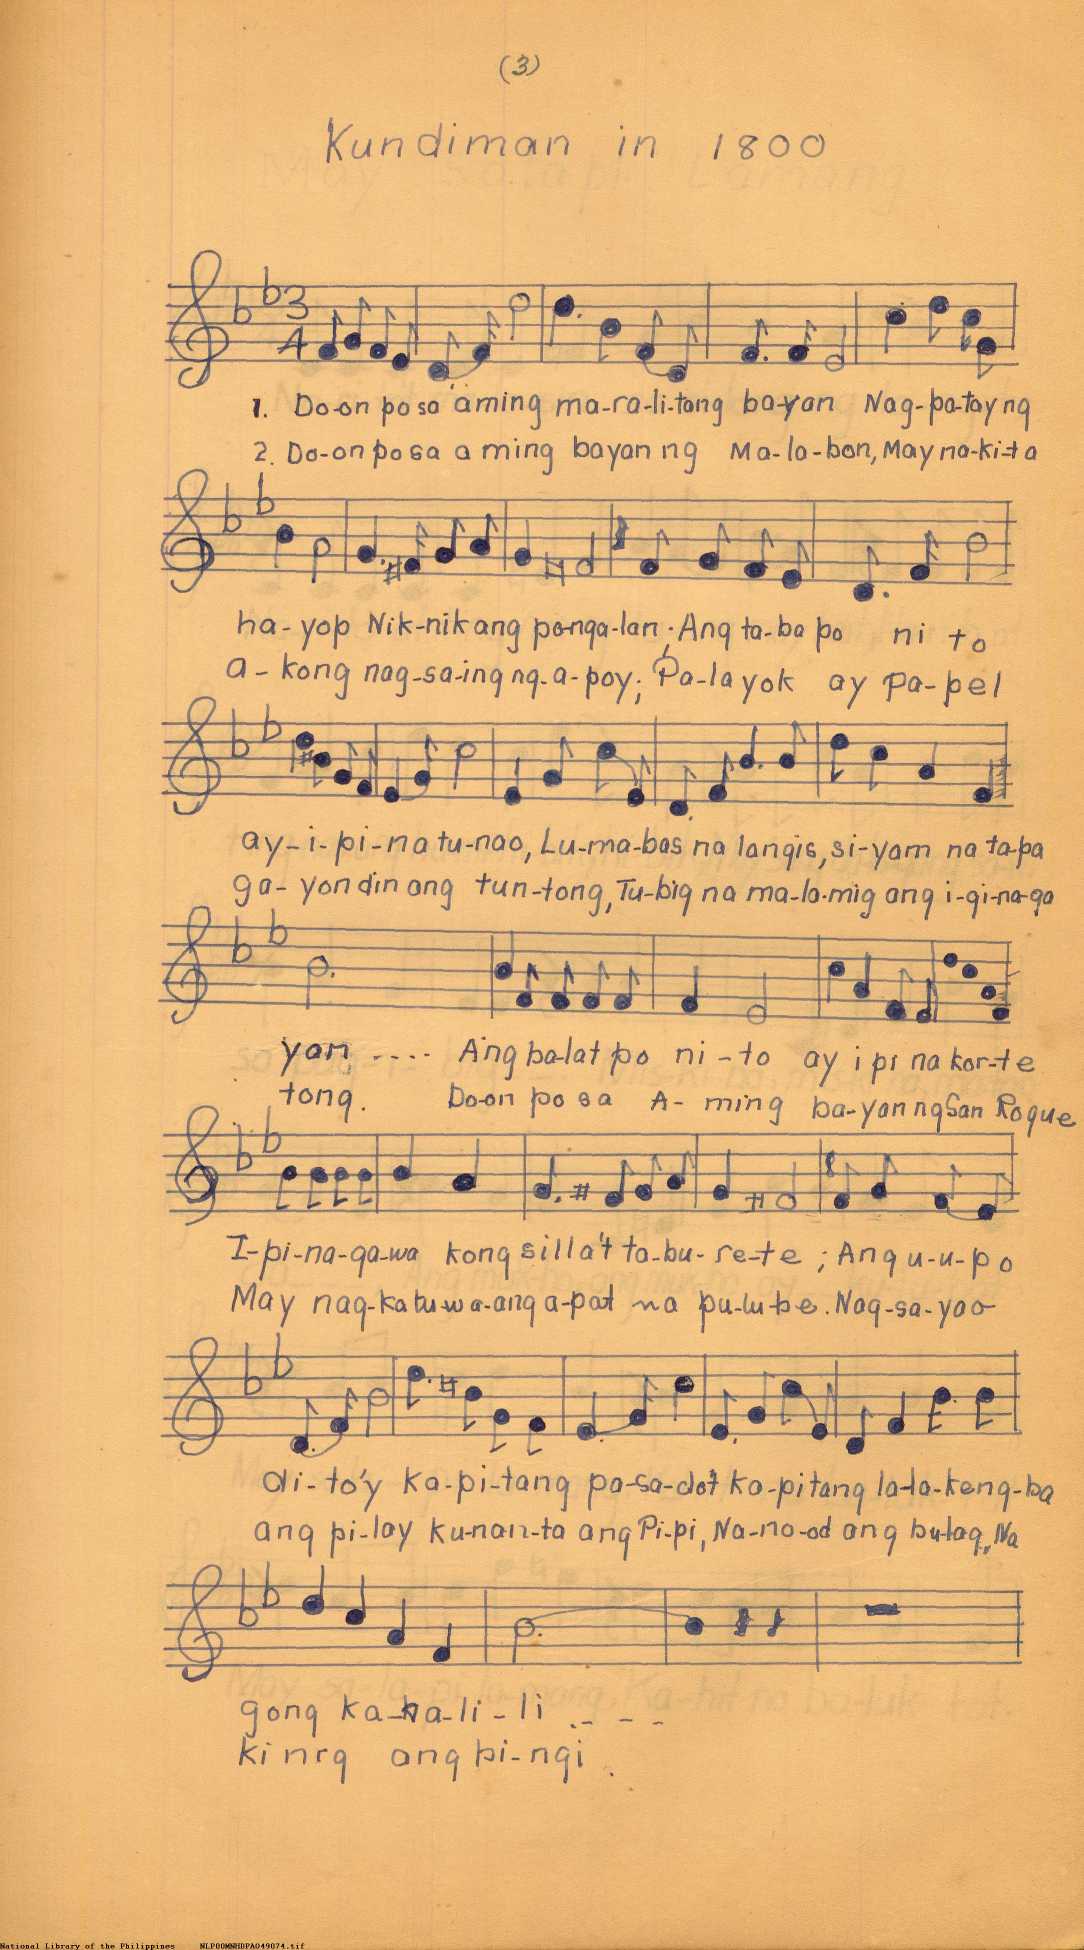 (3)
Kundiman in 1800
3
4
1. Do-on po sa aming ma-ra-li-tang ba-yan Nag-pa-tay ng
2. Do-on po sa a ming bayan ng Ma-la-bon, May na-ki-ta
ha-yop Nik-nik ang pa-nga-lan; Ang ta-ba po ni to
a-kong nag-sa-ing ng-a-poy; Pa-la yok ay Pa-pel
ay-i-pi-na tu-nao, Lu-ma-bas na langis, si-yam na ta-pa
ga-yon din ang tun-tong, Tu-big na ma-la-mig ang i-gi-na-ga
yan .... Ang ba-lat po ni-to ay i pi na kor-te
tong. Do-on po sa A-ming ba-yan ng San Roque
I-pi-na-ga-wa kong silla't ta-bu-re-te; Ang u-u-po
May nag-ka tu-wa-ang a-pat na pu-lu-be. Nag-sa-yao
di-to'y ka-pi-tang pa-sa-do't ka-pitang la-la-keng-ba
ang pi-lay ku-nan-ta ang Pi-pi, Na-no-od ang bu-lag, Na
gong ka-ha-li-li .---
ki nrg ang bi-ngi.
National Library of the Philippines NLP00MNHDPA049074.tif